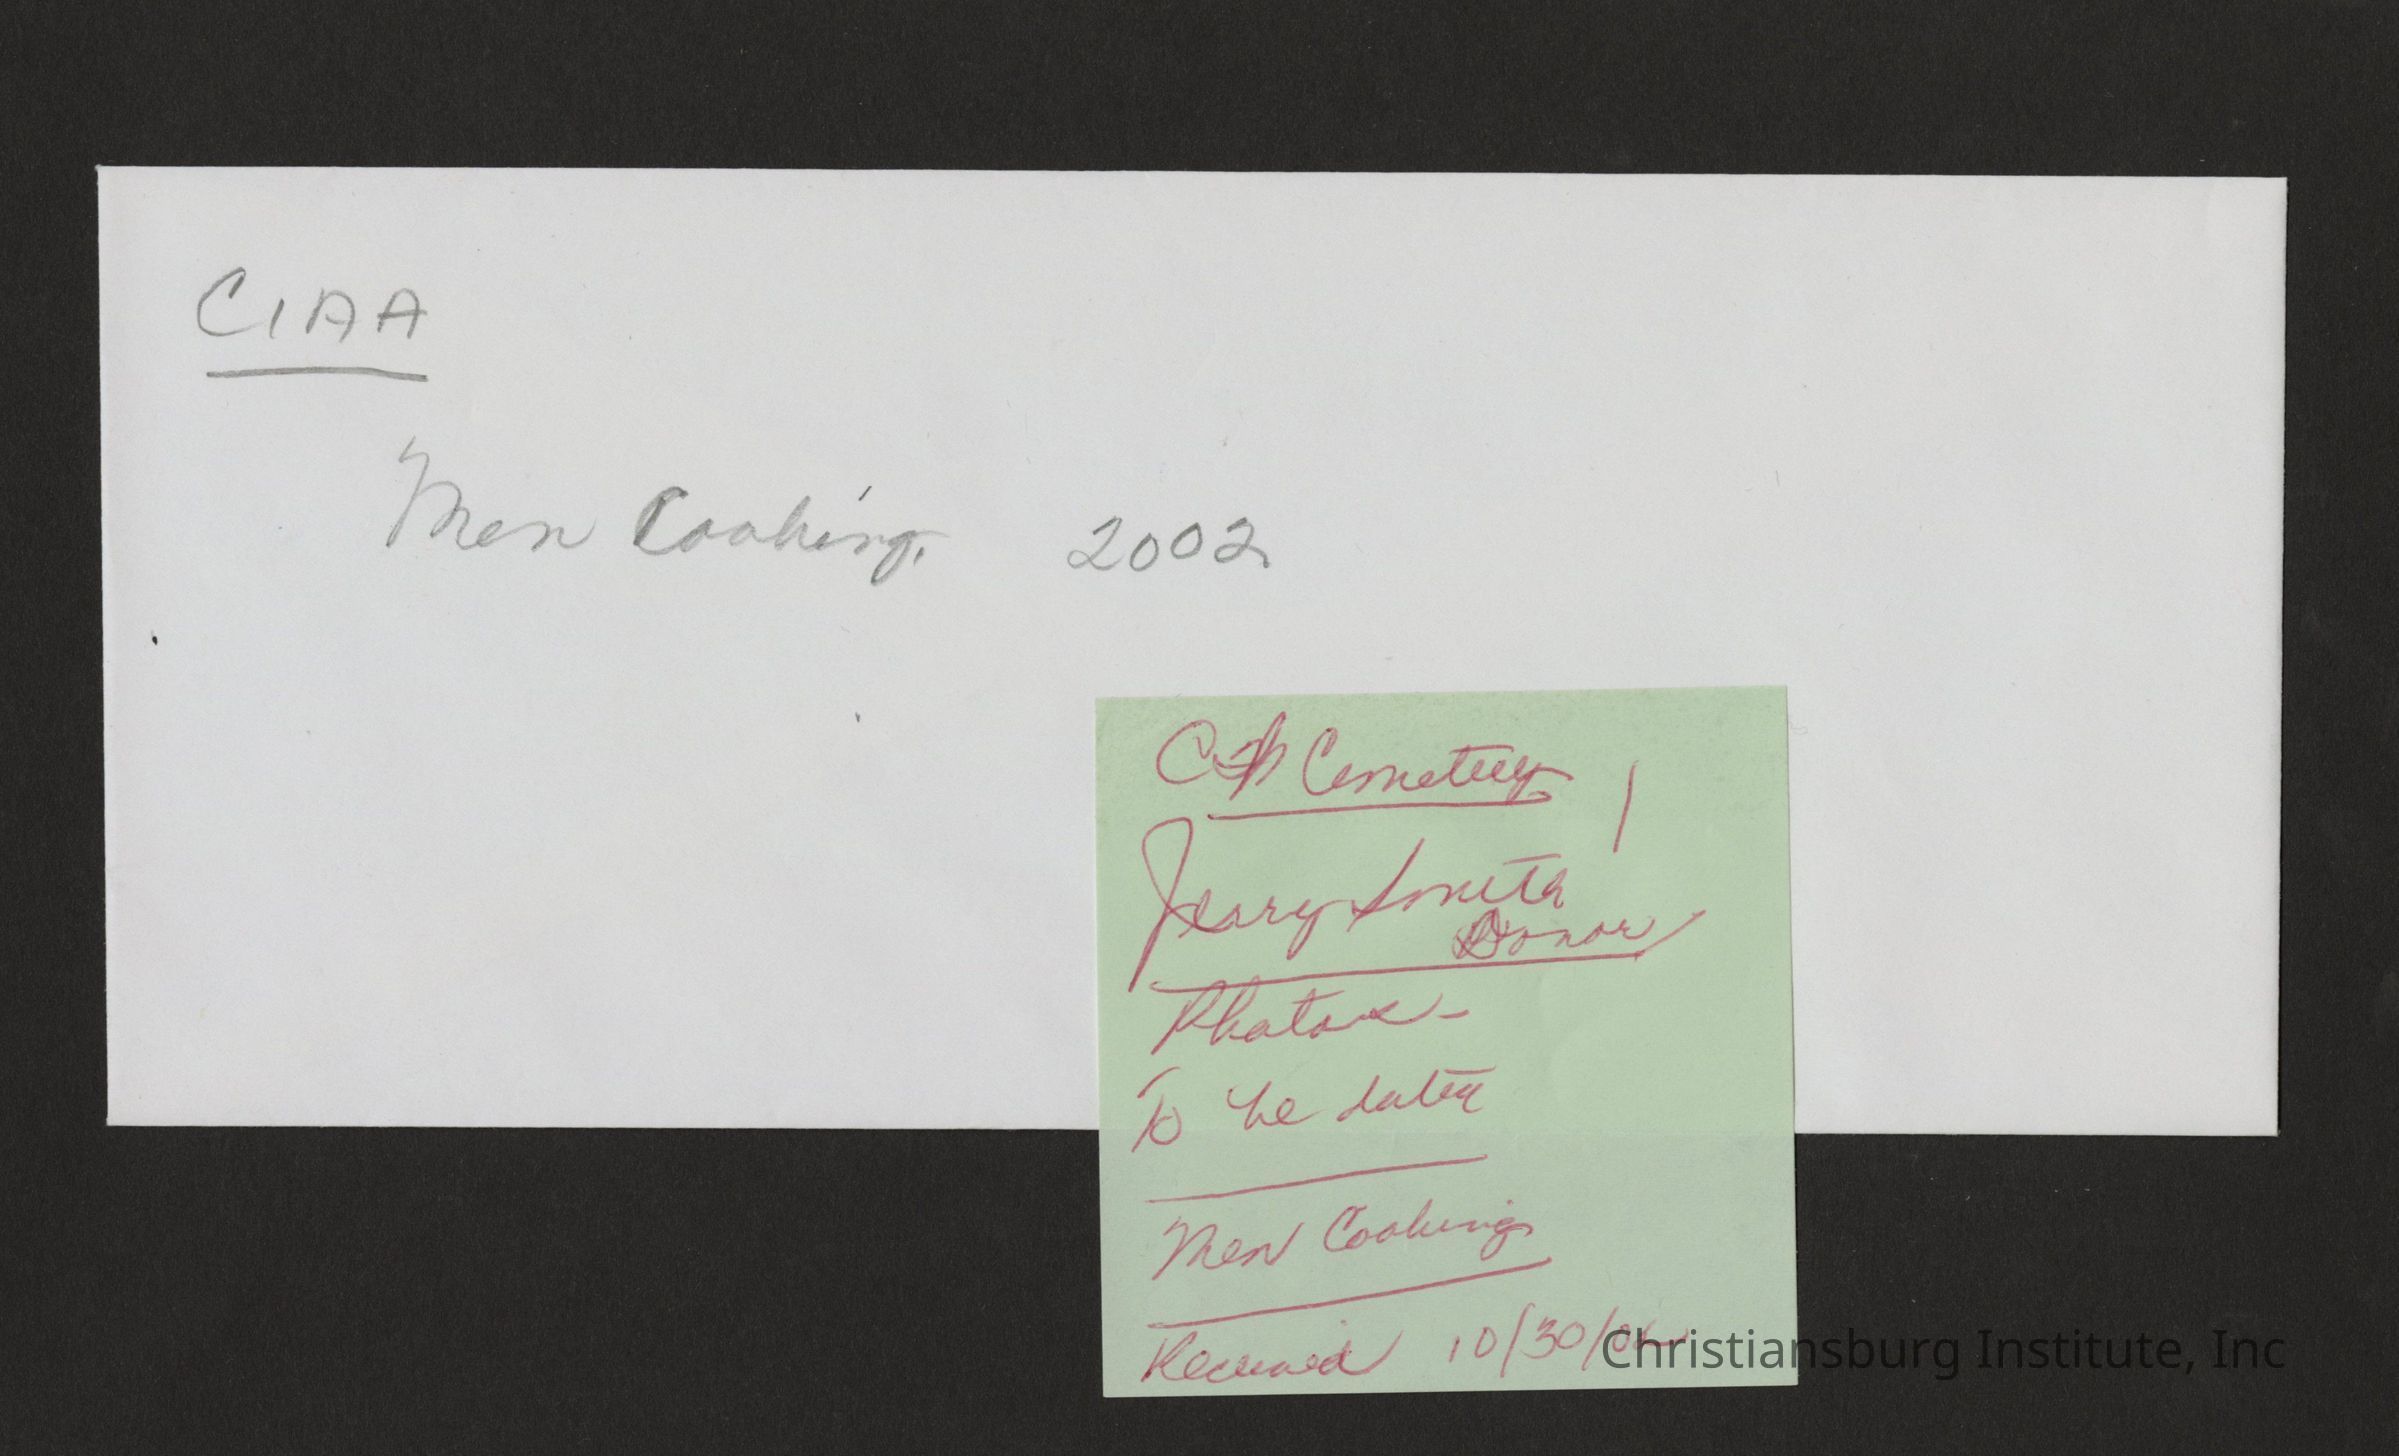 CIAA
Men Cooking. 2002
Cemetery
Jerry Smith
Donor
Photos -
To be dated
Men Cooking
Received 10/30/02
Christiansburg Institute, Inc